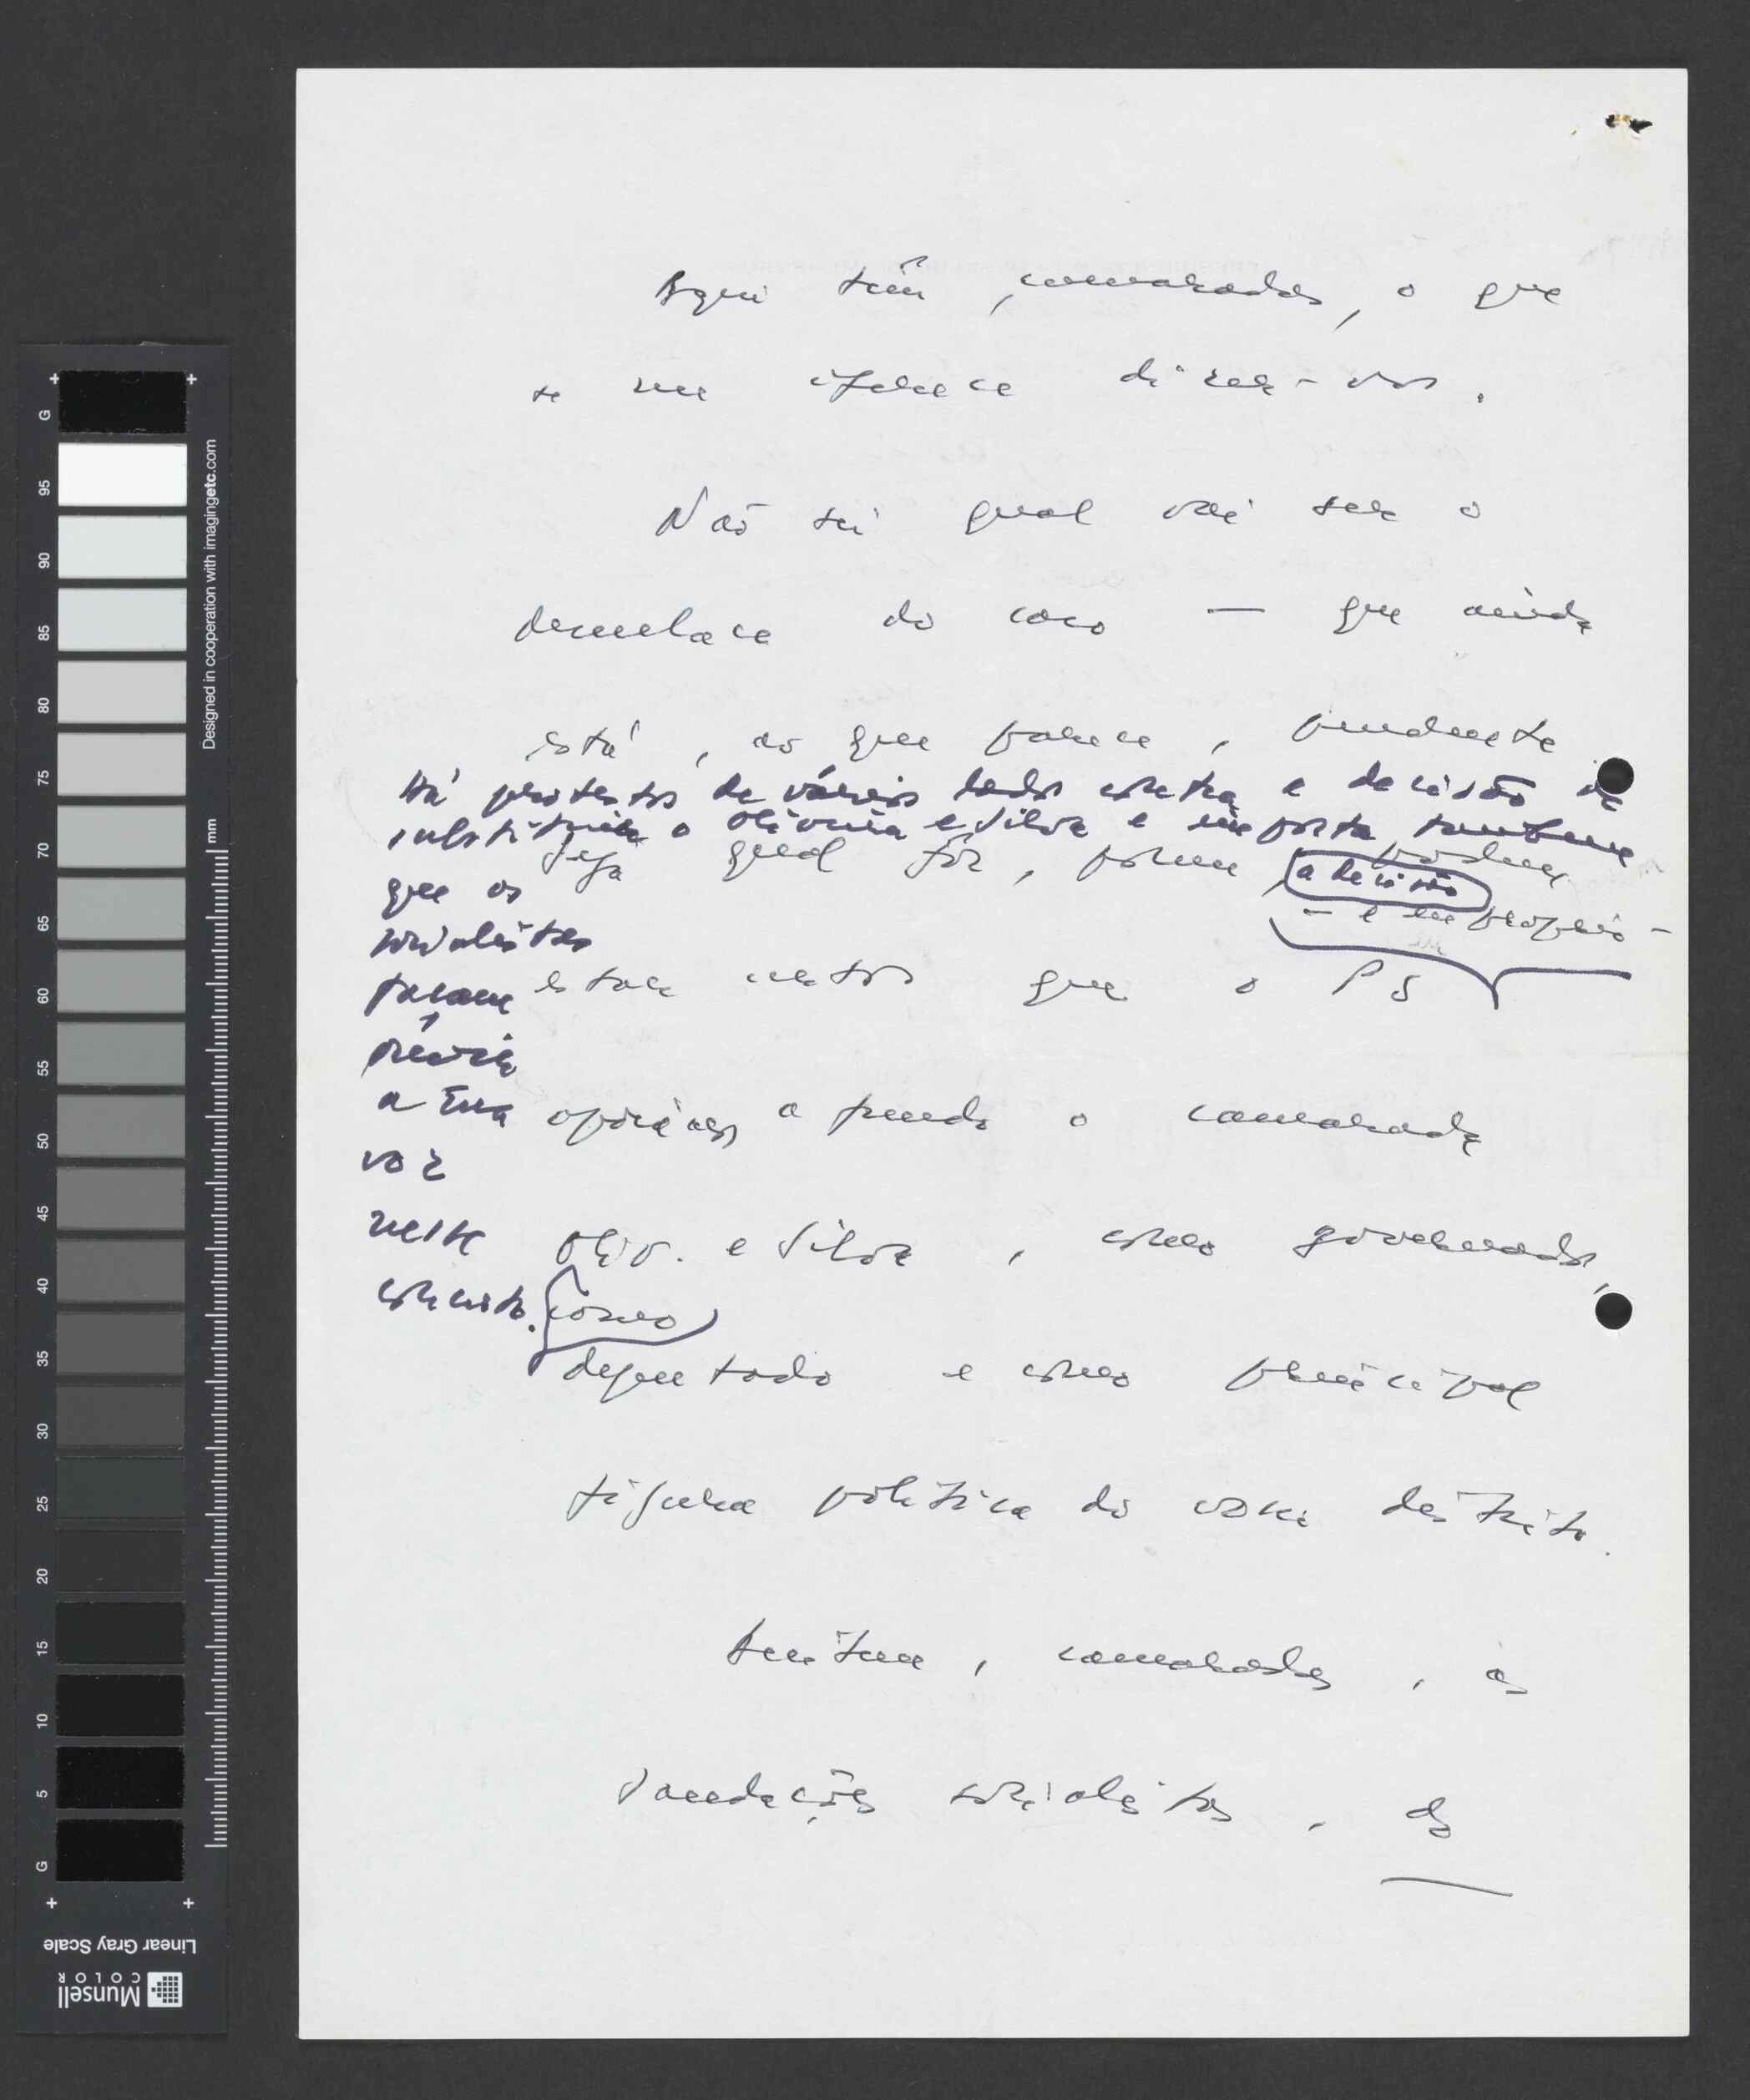 Aqui têm, camaradas, o que
se me oferece dizer-vos.
Não sei qual vai ser o
desenlace do caso — que ainda
está, ao que parece, pendente
Há protestos de vários lados contra a decisão de
substituir o Oliveira e Silva e importa também
que os
socialistas
façam
ouvir
a sua
voz
neste
concerto.
Seja qual for, porém, a decisão podem
— e em propriο —
estar certos que o PS
apoia a fundo o camarada
Oliv. e Silva, como governador,
como
deputado e como principal
figura política do vosso distrito.
Aceitem, camaradas, as
Saudações socialistas, do
G
95
90
85
80
75
70
65
60
55
50
45
40
35
30
25
20
15
10
5
G
mm
Designed in cooperation with imagingetc.com
Linear Gray Scale
Munsell
COLOR